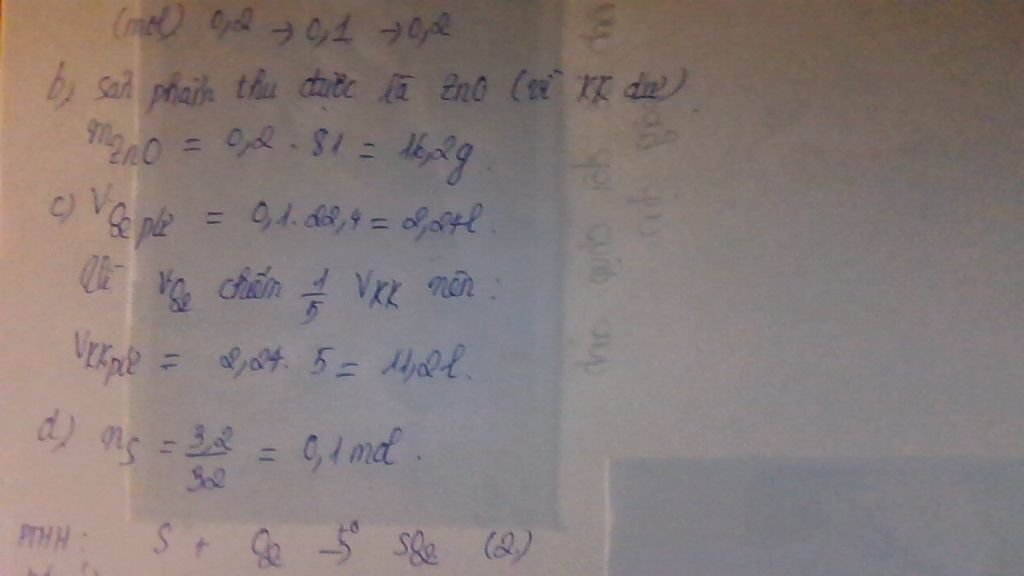 (mol) 0,2 → 0,1 → 0,2
b, sản phẩm thu được là ZnO (vì KK dư)
mZnO = 0,2 . 81 = 16,2g.
c) VO2 pứ = 0,1 . 22,4 = 2,24l.
Vì VO2 chiếm 1/5 VKK nên :
VKKpứ = 2,24 . 5 = 11,2l.
d) nS = 3,2/32 = 0,1 mol .
PTHH : S + O2 -t°> SO2 (2)